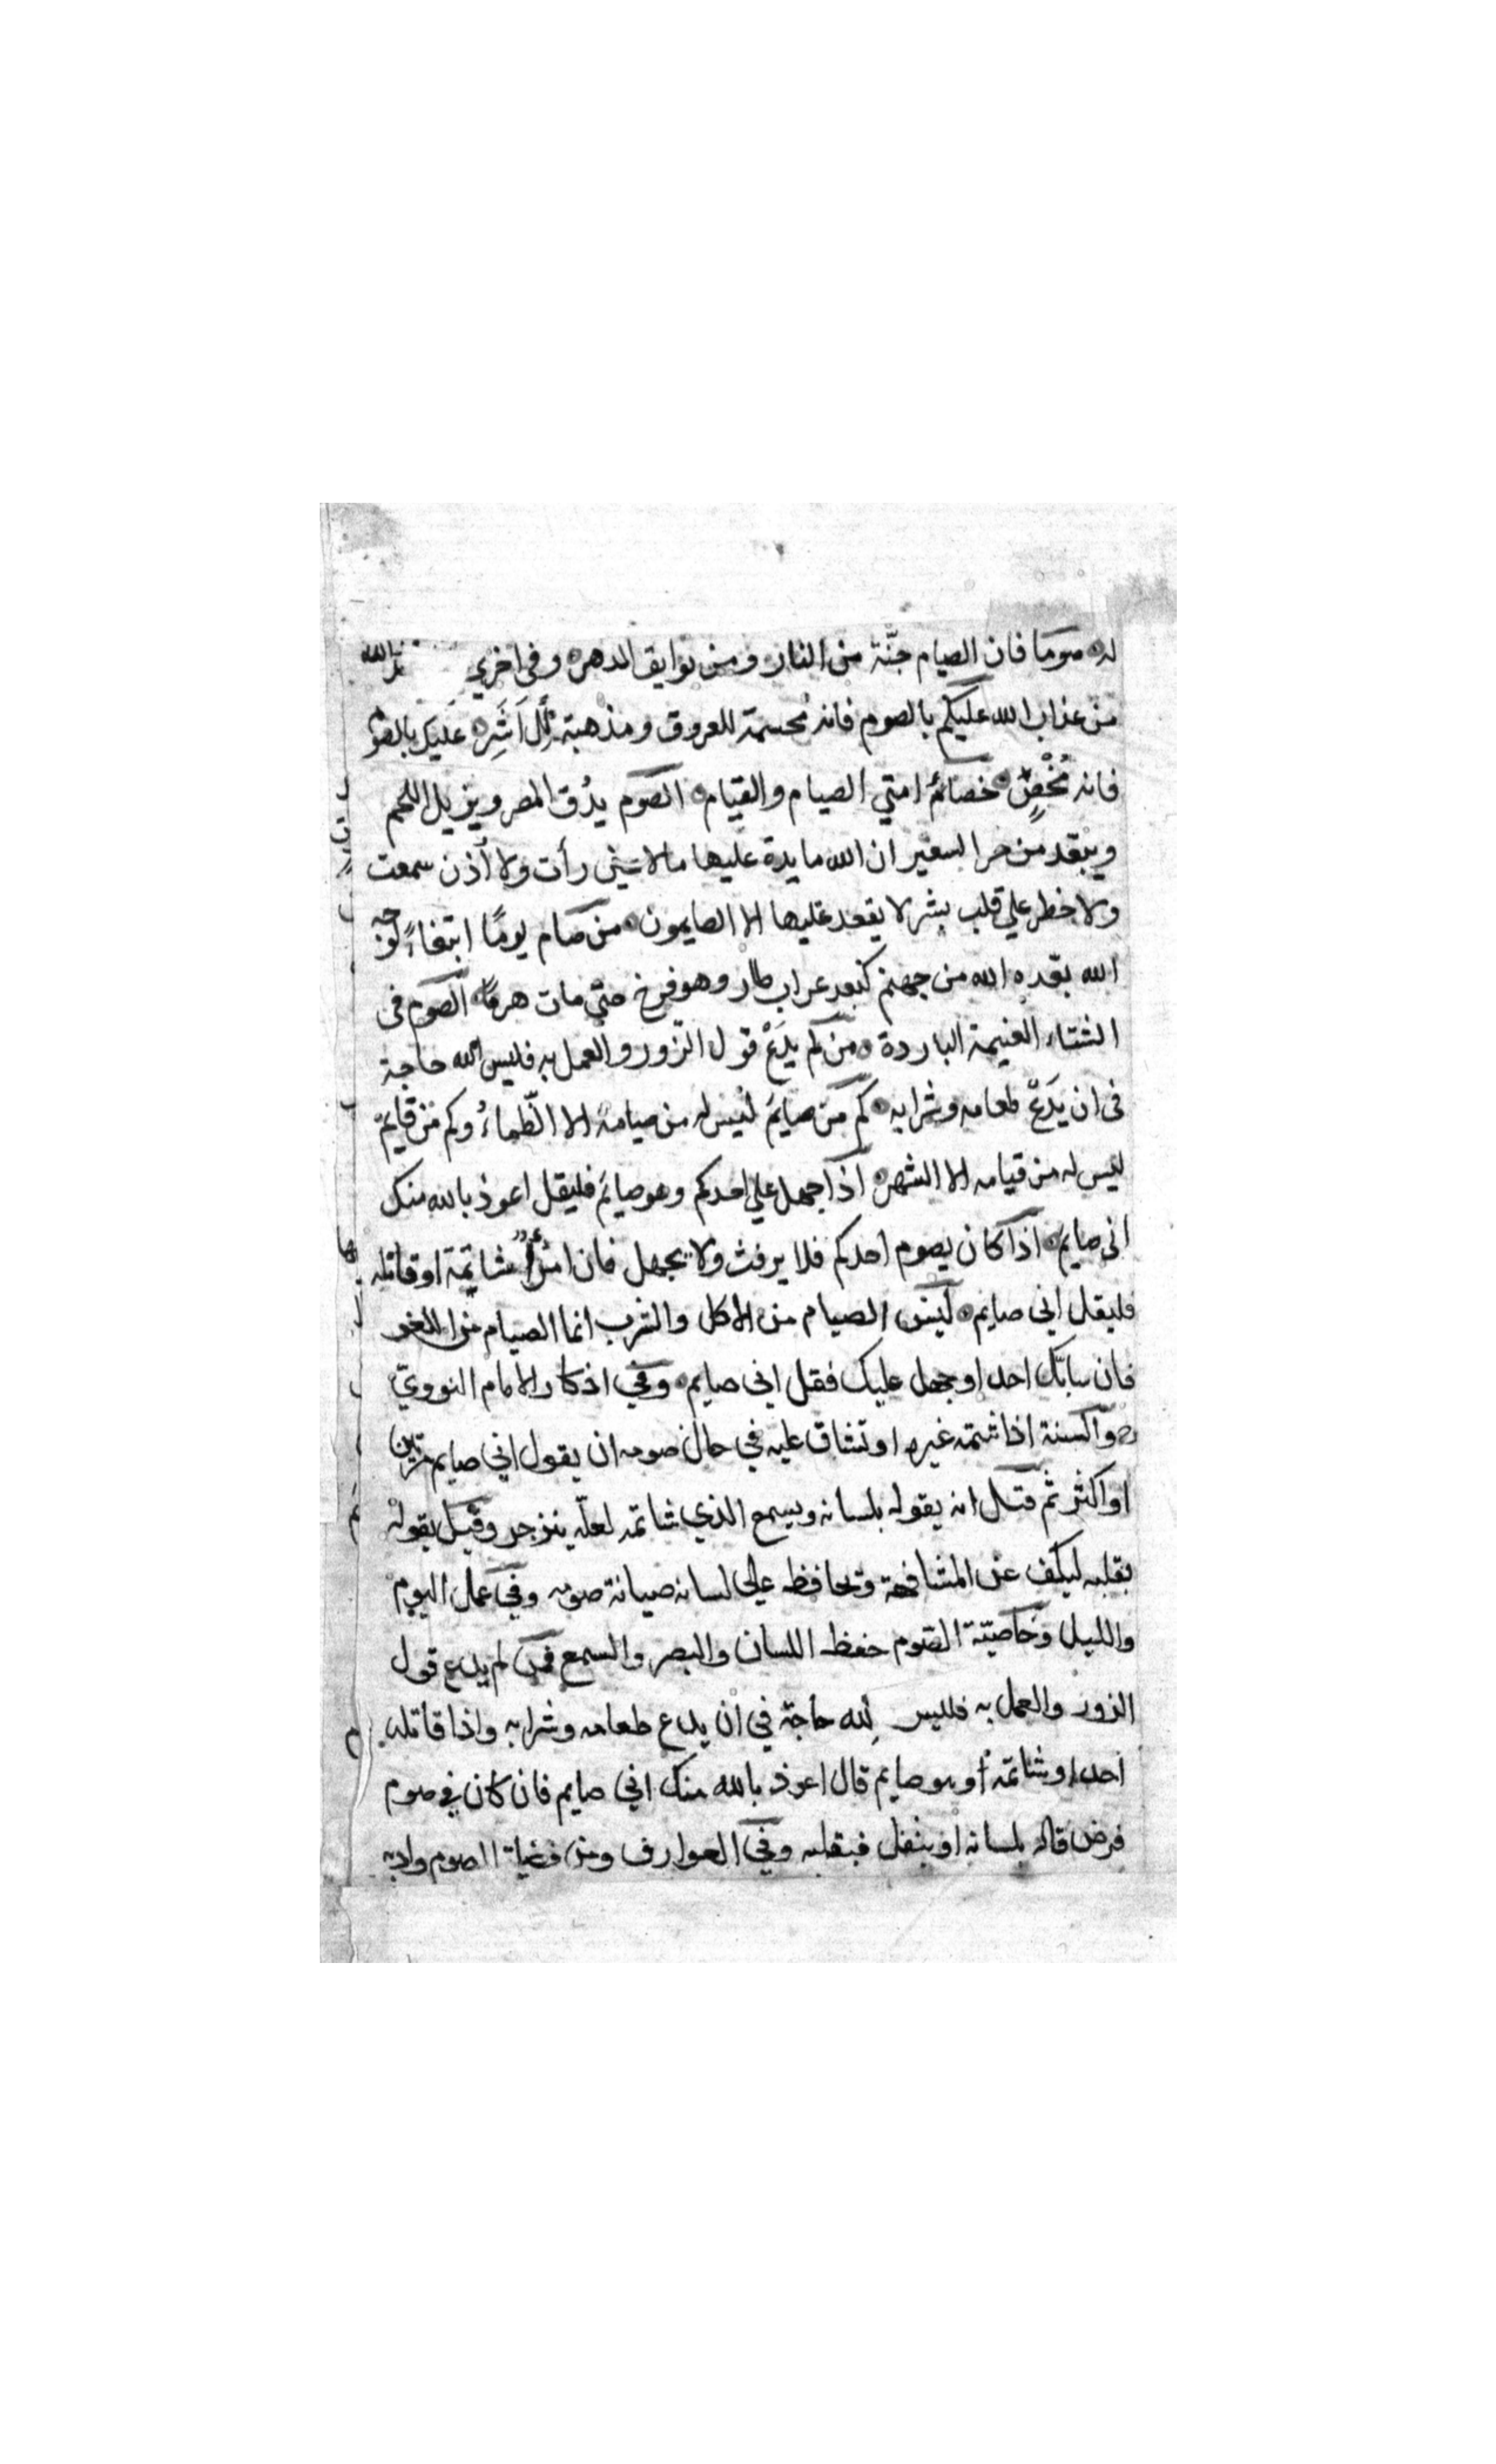 له صومًا فان الصيام جنّة من النار ومن بوايق الدهر وفى اخري
من عذاب الله عليكم بالصوم فانه محسمة للعروق ومذهبة للأَشَرِ عليك بالصوم
فانه مُخْصٍ خصاءُ امتي الصيام والقيام الصوم يدُق المصر ويزيل اللحم
ويبعد من حر السعير ان الله مايدة عليها مالا عين رأت ولا أذن سمعت
ولا خطر علي قلب بشر لا يقعد عليها الا الصايمون من صام يومًا ابتغاءً لوجه
الله بعّده الله من جهنم كبعد غراب طار وهو فرخ حتّي مات هرمًا الصوم فى
الشتاء الغنيمة الباردة من لم يدَعْ قول الزّور والعمل به فليس لله حاجة
فى ان يدَعْ طعامه وشرابه كم من صايم ليس له من صيامه الا الظّماءُ وكم من قايم
ليس له من قيامه الا السّهر اذا جهل علي احدكم وهو صايم فليقل اعوذ بالله منك
انى صايم اذا كان يصوم احدكم فلا يرفث ولا يجهل فان امرؤٌ شاتمة او قاتله
فليقل اني صايم ليس الصيام من الاكل والشرب انما الصيام من اللغو
فان سابّك احد او جهل عليك فقل انى صايم وفي اذكار الامام النوويّ
والسنة اذا شتمه غيره او تشاق عليه في حال صومه ان يقول اني صايم مرّتين
او اكثر ثم قيل انه يقوله بلسانه ويسمع الذي شاتمه لعلّه ينزجر وقيل يقوله
بقلبه ليكف عن المشافهة وتحافظه علي لسانه صيانة صومه وفي عمل اليوم
والليل وخاصيّة الصّوم حفظ اللسان والبصر والسمع فمن لم يدع قول
الزور والعمل به فليس لله حاجة في ان يدع طعامه وشرابه واذا قاتله
احد او شاتمه او هو صايم قال اعوذ بالله منك اني صايم فان كان في صوم
فرض قاله بلسانه او بنفل فبقلبه وفي العوارف ومن فضيلة الصوم وادبه